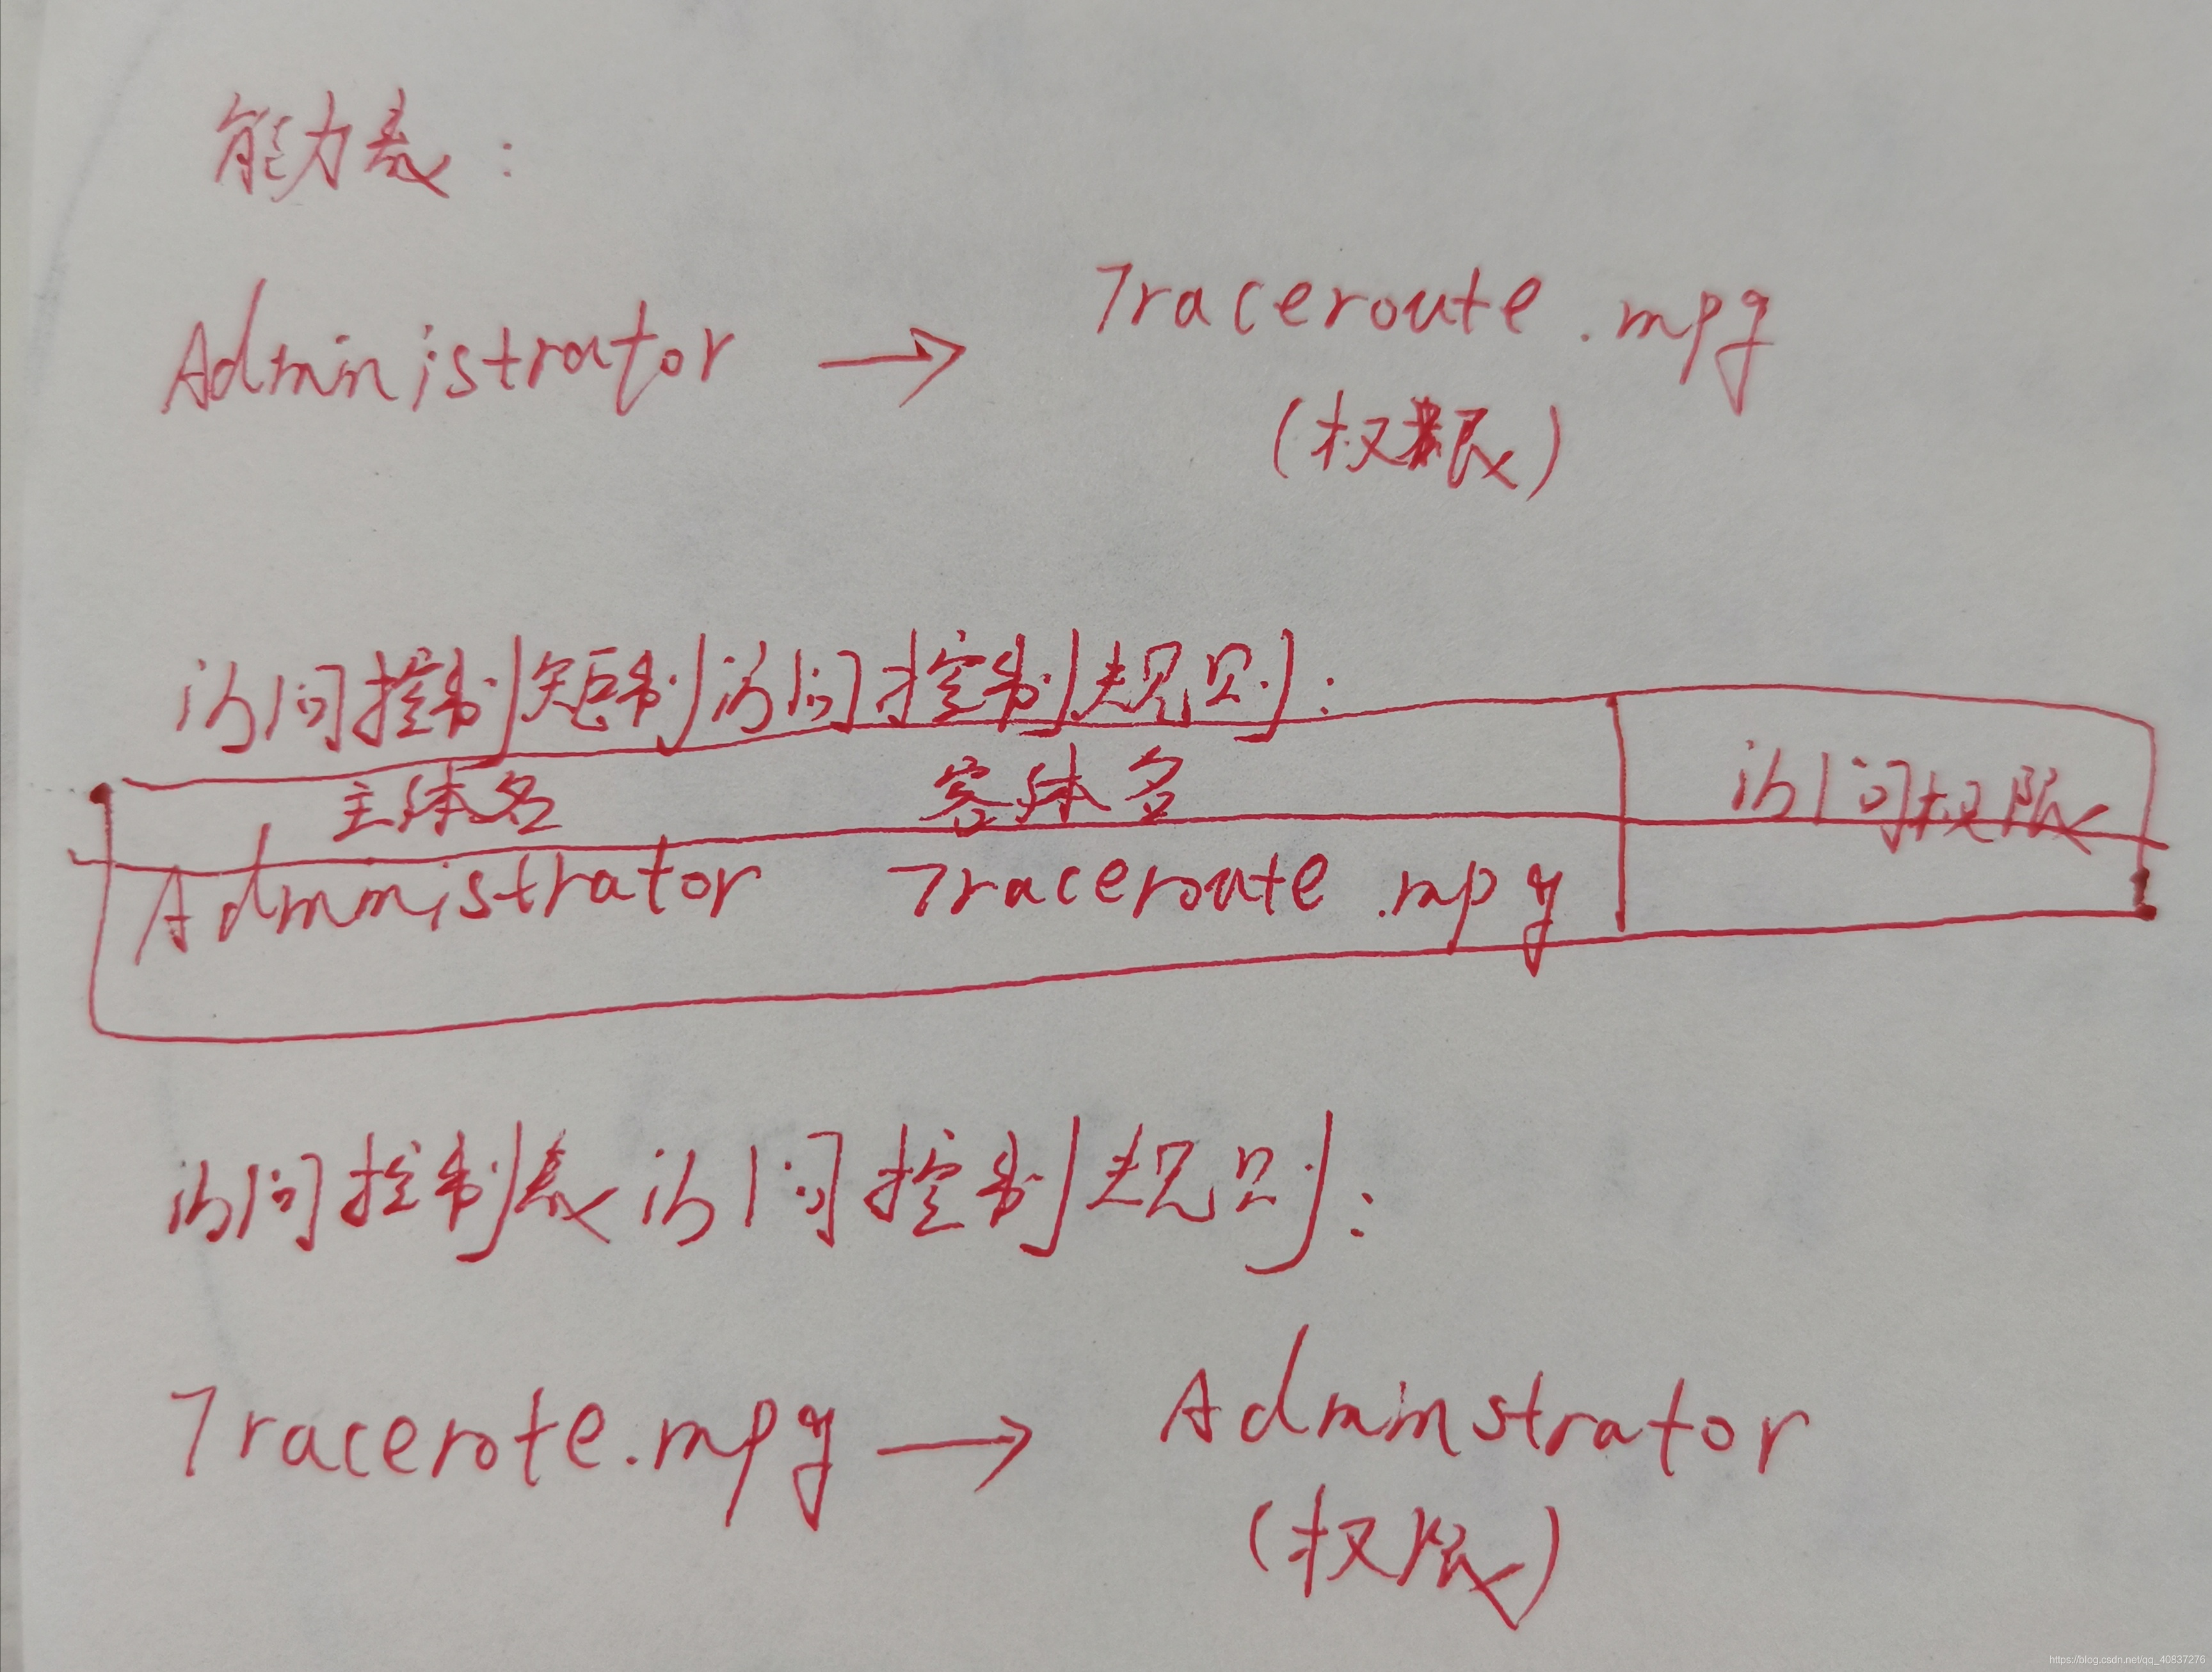 能力表：
Administrator → Traceroute.mpg
(权限)
访问控制矩制访问控制规则：
主体名 客体名 访问权限
Administrator Traceroute.mpg
访问控制表访问控制规则：
Tracerote.mpg → Adminstrator
(权限)
https://blog.csdn.net/qq_40837276